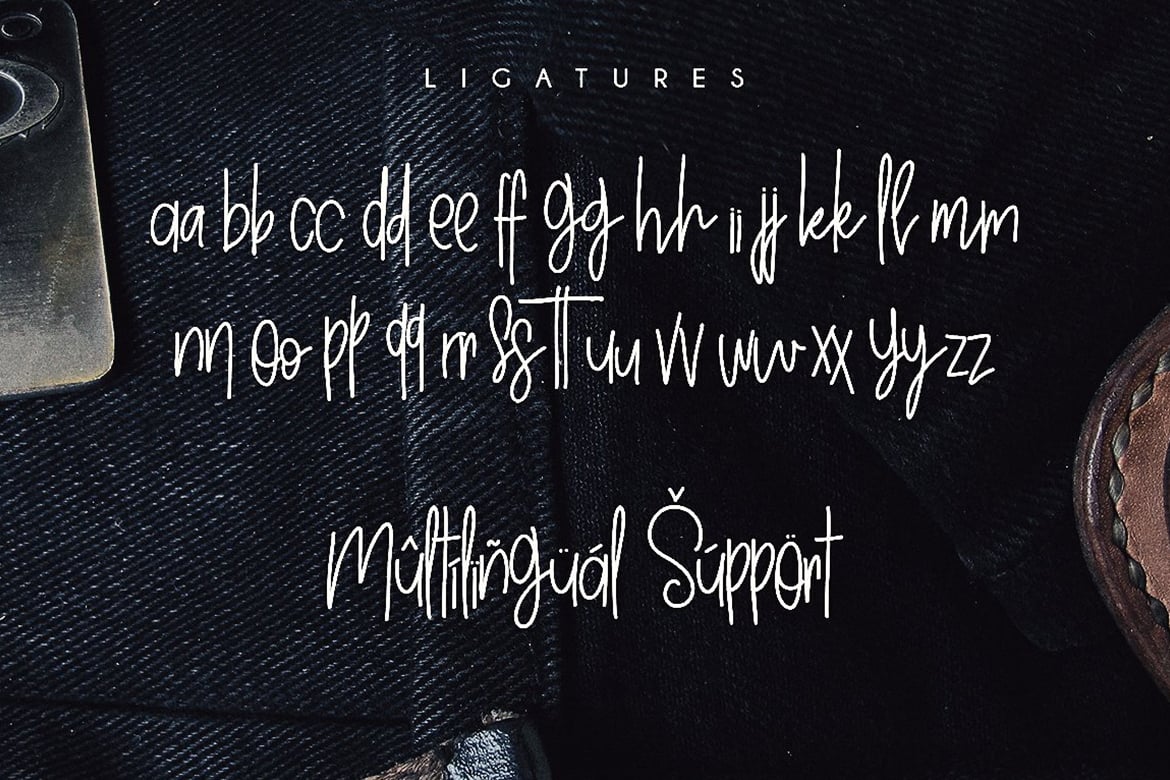 LIGATURES
aa bb cc dd ee ff gg hh ii jj kk ll mm
nn oo pp qq rr ss tt uu vv ww xx yy zz
Mûltílïñgüál Šúppört